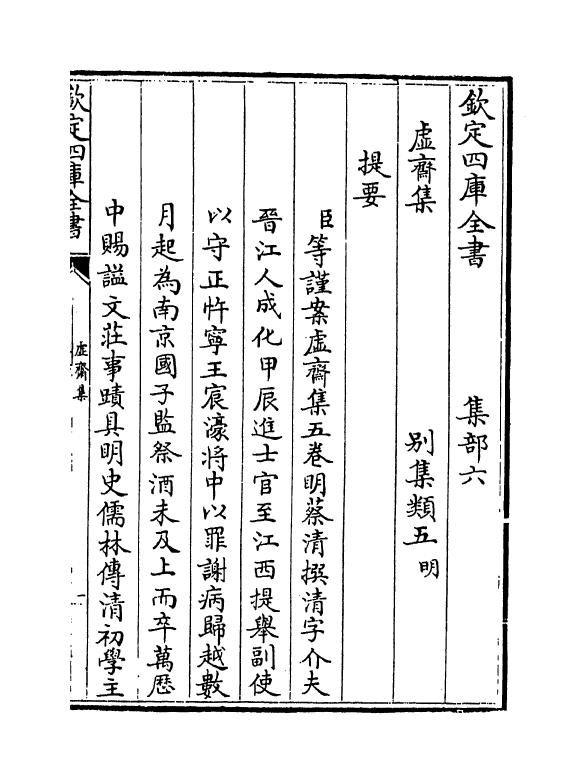 欽定四庫全書　集部六
虛齋集　別集類五 明
提要
臣等謹案虛齋集五卷明蔡清撰清字介夫
晉江人成化甲辰進士官至江西提舉副使
以守正忤寧王宸濠將中以罪謝病歸越數
月起為南京國子監祭酒未及上而卒萬歷
中賜諡文莊事蹟具明史儒林傳清初學主
欽定四庫全書
虛齋集